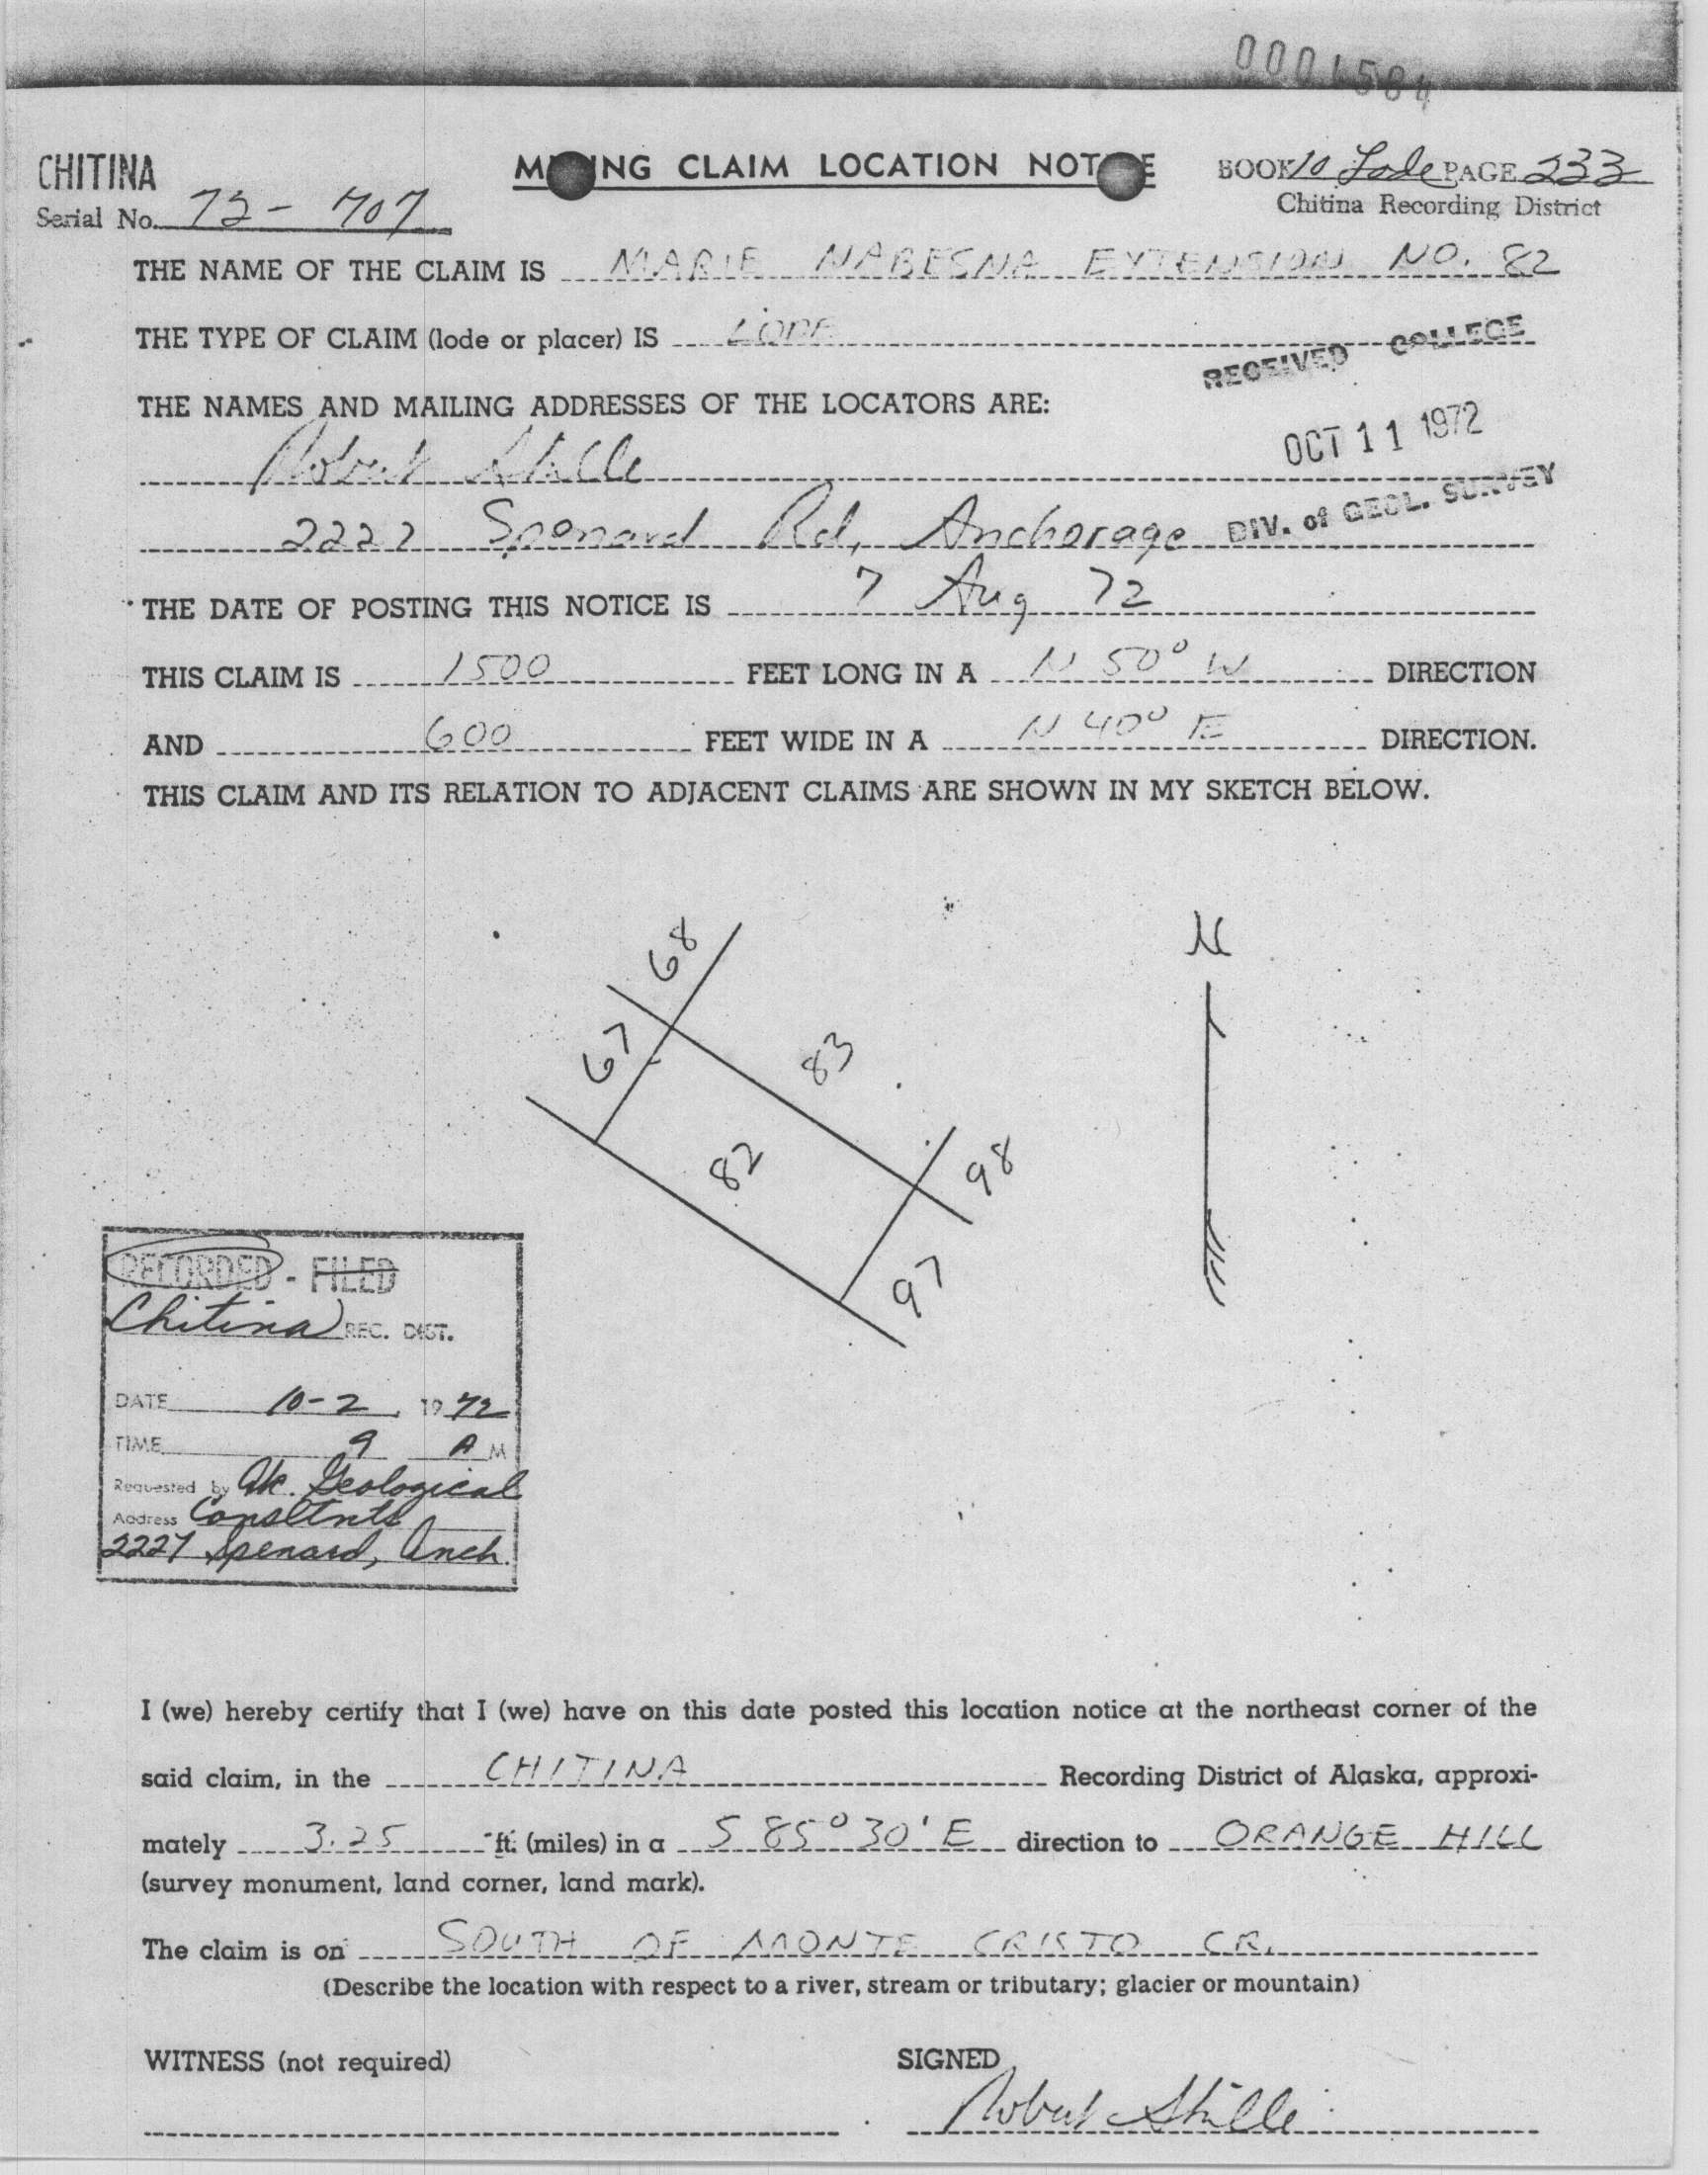 CHITINA
MINING CLAIM LOCATION NOTICE
BOOK 10 Lode PAGE 233
Serial No. 72-707
Chitina Recording District
THE NAME OF THE CLAIM IS MARIE NABESNA EXTENSION NO. 82
THE TYPE OF CLAIM (lode or placer) IS LODE
RECEIVED COLLEGE
THE NAMES AND MAILING ADDRESSES OF THE LOCATORS ARE:
OCT 11 1972
Robert Stille
DIV. of GEOL. SURVEY
2227 Spenard Rd, Anchorage
THE DATE OF POSTING THIS NOTICE IS 7 Aug 72
THIS CLAIM IS 1500 FEET LONG IN A N 50° W DIRECTION
AND 600 FEET WIDE IN A N 40° E DIRECTION.
THIS CLAIM AND ITS RELATION TO ADJACENT CLAIMS ARE SHOWN IN MY SKETCH BELOW.
68
N
67
83
82
98
97
RECORDED - FILED
Chitina REC. DIST.
DATE 10-2, 1972
TIME 9 A M
Requested by Ak. Geological
Address Consltnts
2227 Spenard, Anch.
I (we) hereby certify that I (we) have on this date posted this location notice at the northeast corner of the
said claim, in the CHITINA Recording District of Alaska, approxi-
mately 3.25 ft. (miles) in a S 85° 30' E direction to ORANGE HILL
(survey monument, land corner, land mark).
The claim is on SOUTH OF MONTE CRISTO CR.
(Describe the location with respect to a river, stream or tributary; glacier or mountain)
WITNESS (not required)
SIGNED
Robert Stille